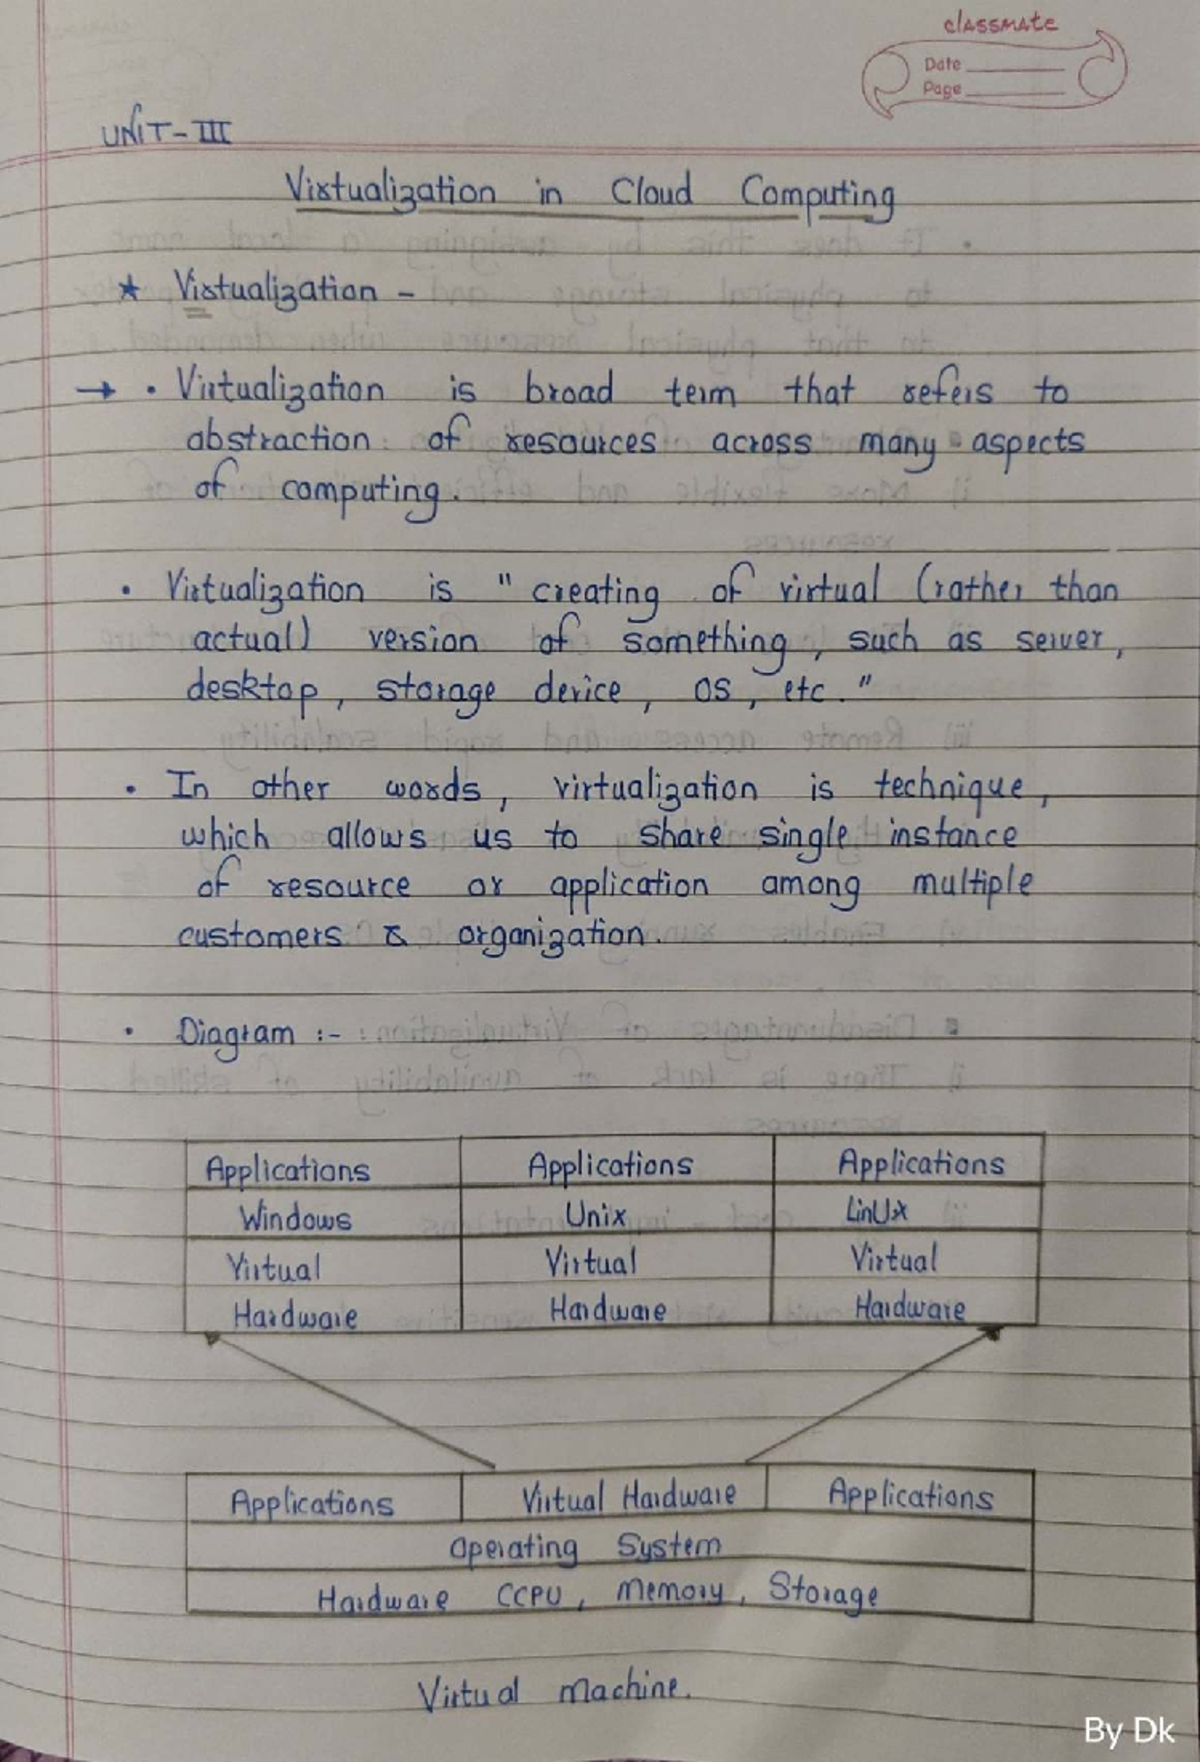 classmate
Date
Page
UNIT-III
Virtualization in Cloud Computing
★ Virtualization -
→ • Virtualization is broad term that refers to
abstraction of resources across many aspects
of computing.
• Virtualization is " creating of virtual (rather than
actual) version of something, such as server,
desktop, storage device, OS, etc."
• In other words, virtualization is technique,
which allows us to share single instance
of resource or application among multiple
customers & organization.
• Diagram :-
Applications Applications Applications
Windows Unix LinUx
Virtual Virtual Virtual
Hardware Hardware Hardware
Applications Virtual Hardware Applications
Operating System
Hardware CCPU, Memory, Storage
Virtual machine.
By Dk